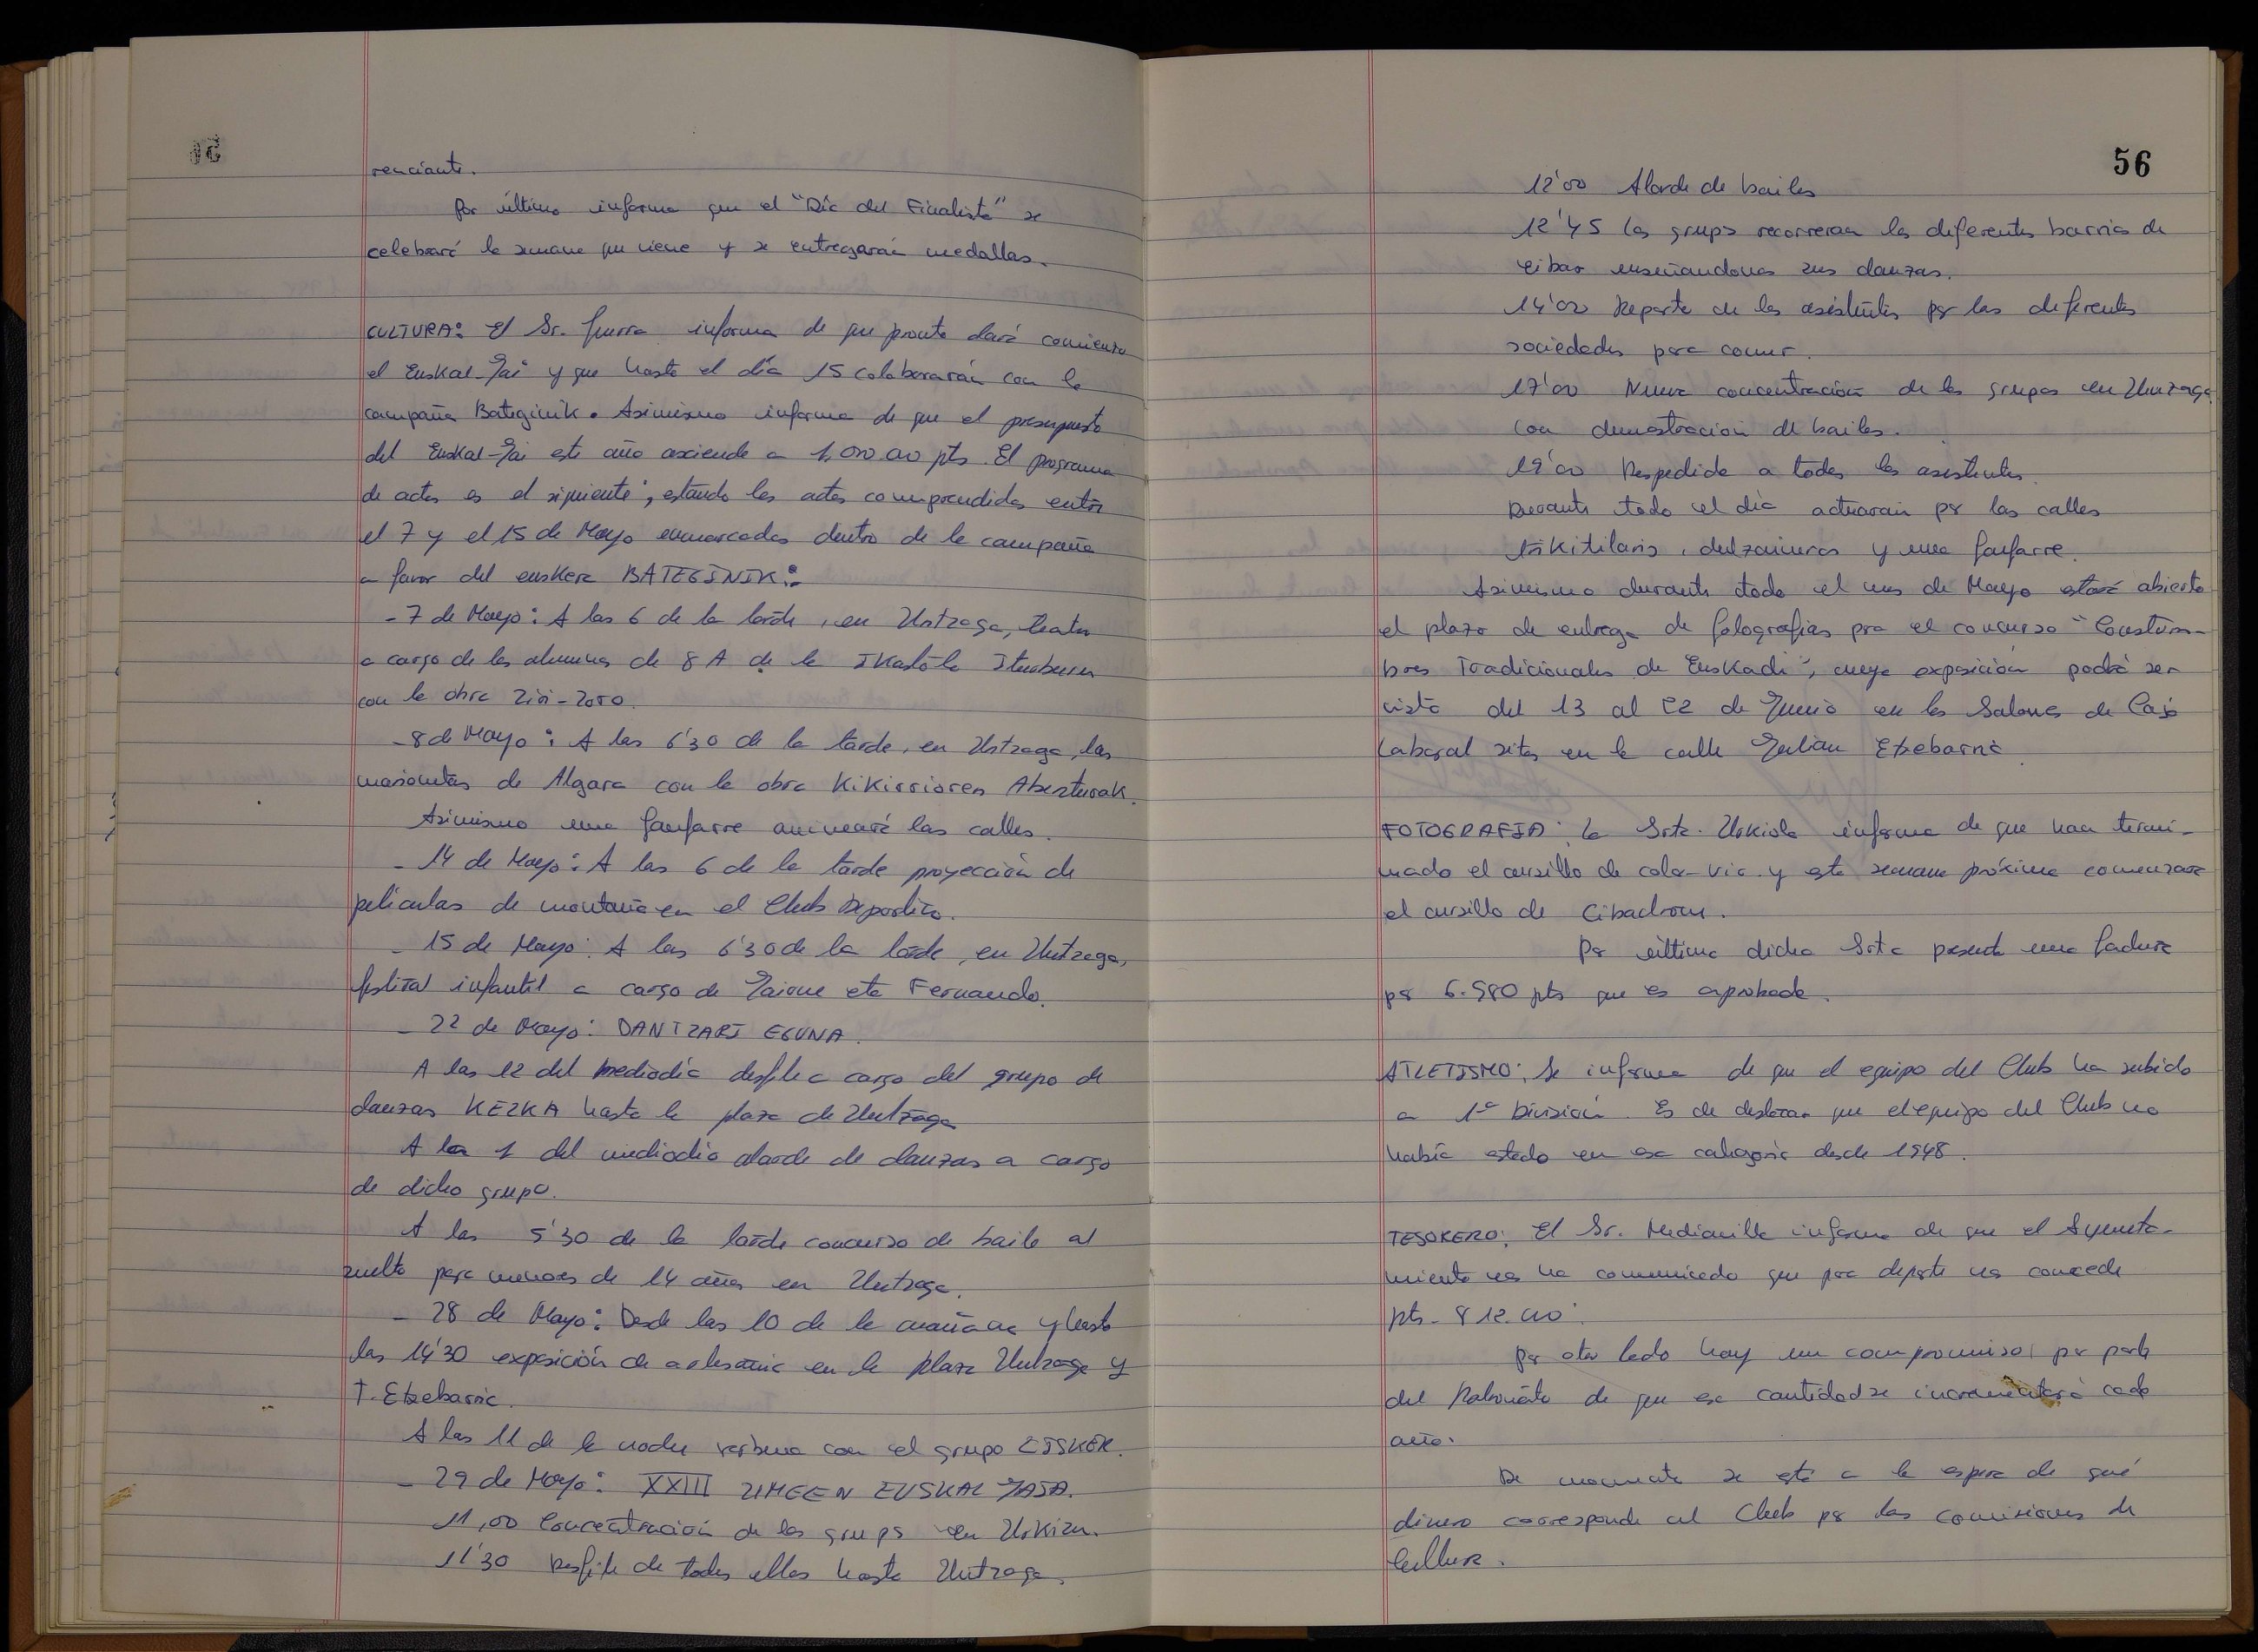 renciante.
Por último informa que el "Día del Finalista" se
celebrará la semana que viene y se entregarán medallas.
CULTURA: El Sr. Guerra informa de que pronto dará comienzo
el Euskal-Jai y que hasta el día 15 colaborarán con la
campaña Bateginik. Asimismo informa de que el presupuesto
del Euskal-Jai este año asciende a 1.000.00 pts. El programa
de actos es el siguiente, estando los actos comprendidos entre
el 7 y el 15 de Mayo enmarcados dentro de la campaña
a favor del euskera BATEGINIK:
- 7 de Mayo: A las 6 de la tarde, en Untzaga, teatro
a cargo de los alumnos de 8 A de la Ikastola Iturburu
con la obra Ziri-Zoro.
- 8 de Mayo: A las 6'30 de la tarde, en Untzaga, las
marionetas de Algara con la obra Kikirrioren Abenturak.
Asimismo una fanfarre animará las calles.
- 14 de Mayo: A las 6 de la tarde proyección de
películas de montaña en el Club Deportivo.
- 15 de Mayo: A las 6'30 de la tarde, en Untzaga,
festival infantil a cargo de Jaione eta Fernando.
- 22 de Mayo: DANTZARI EGUNA.
A las 12 del mediodía desfile a cargo del grupo de
danzas KEZKA hasta la plaza de Untzaga
A la 1 del mediodía alarde de danzas a cargo
de dicho grupo.
A las 5'30 de la tarde concurso de baile al
suelto para menores de 14 años en Untzaga.
- 28 de Mayo: Desde las 10 de la mañana y hasta
las 14'30 exposición de artesanía en la plaza Untzaga y
T. Etxebarria.
A las 11 de la noche verbena con el grupo EISKER.
- 29 de Mayo: XXIII UMEEN EUSKAL JAIA.
11,00 Concentración de los grupos en Urkizu.
11'30 Desfile de todos ellos hasta Untzaga.
56
12'00 Alarde de bailes
12'45 Los grupos recorreran los diferentes barrios de
Eibar enseñandonos sus danzas.
14'00 Reparto de los asistentes por las diferentes
sociedades para comer.
17'00 Nueva concentración de los grupos en Untzaga
con demostracion de bailes.
19'00 Despedida a todos los asistentes.
Durante todo el día actuarán por las calles
trikitilaris, dulzaineros y una fanfarre.
Asimismo durante todo el mes de Mayo estará abierto
el plazo de entrega de fotografías para el concurso "Constum-
bres Tradicionales de Euskadi", cuya exposición podrá ser
vista del 13 al 22 de Junio en los Salones de Caja
Laboral sitos en la calle Julian Etxebarria
FOTOGRAFIA: La Srta. Urkiola informa de que han termi-
nado el cursillo de color-vic y esta semana próxima comenzará
el cursillo de Cibachrome.
Por última dicha Srta presenta una factura
por 6.580 pts que es aprobada.
ATLETISMO: Se informa de que el equipo del Club ha subido
a 1ª División. Es de destacar que el equipo del Club no
había estado en esa categoría desde 1948.
TESORERO: El Sr. Mediavilla informa de que el Ayunta-
miento nos ha comunicado que para deporte nos concede
pts. 812.000.
Por otro lado hay un compromiso por parte
del Patronato de que esa cantidad se incrementará cada
año.
De momento se está a la espera de qué
dinero corresponde al Club por las comisiones de
Cultura.